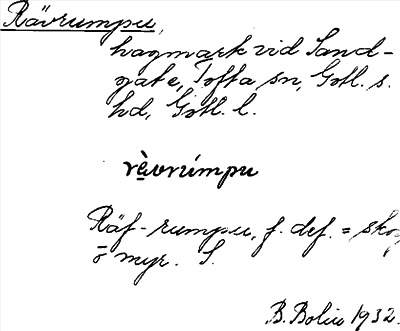 Rävrumpu,
hagmark vid Sand-
gate, Tofta sn, Gotl. s.
hd, Gotl. l.
rèvrúmpu
Räf-rumpu, f. def. = skog
o myr. S.
B. Bolin 1932.